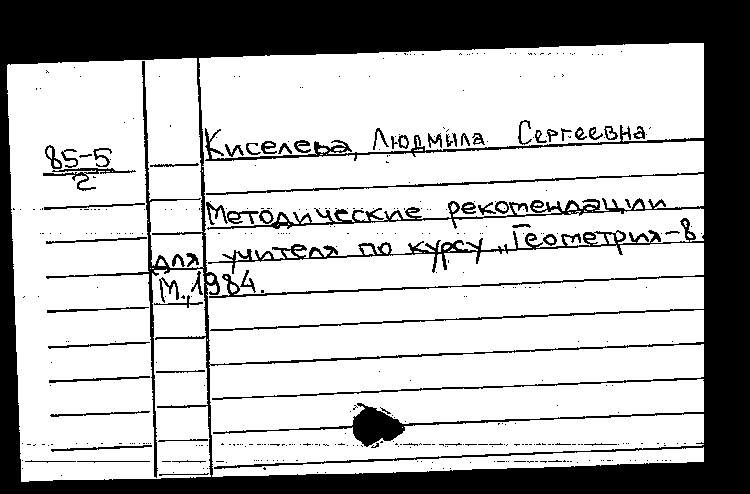 85-5
2
Киселева, Людмила Сергеевна
Методические рекомендации
для учителя по курсу „Геометрия-8.
М., 1984.